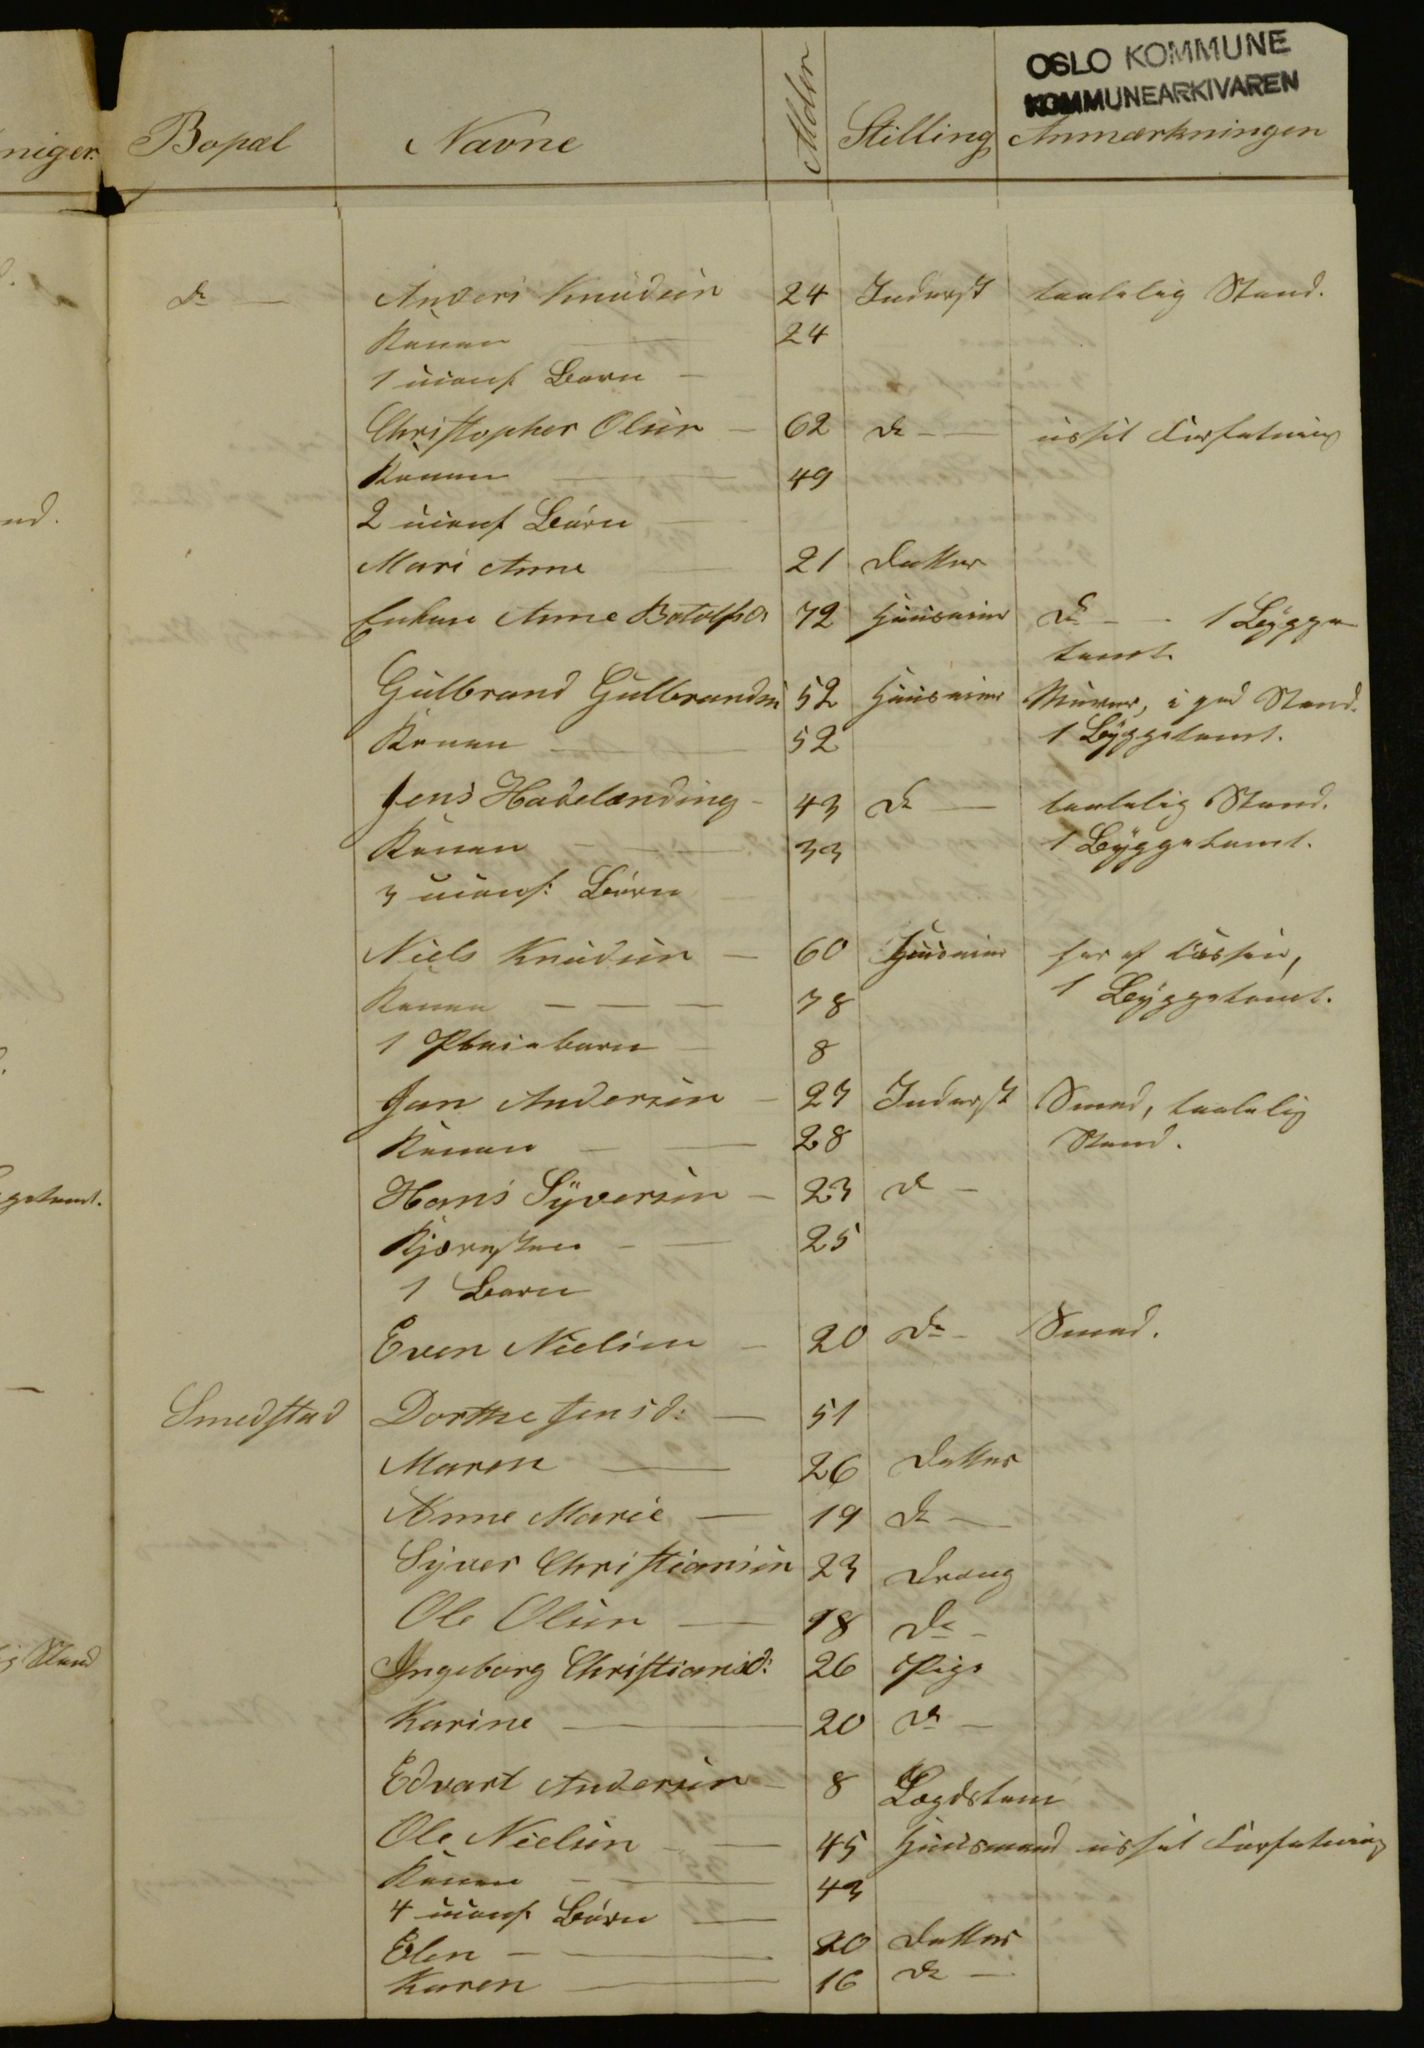 OSLO KOMMUNE
KOMMUNEARKIVAREN
niger.
Bopæl Navne Alder Stilling Anmærkninger
do Anders Knudsen 24 Inderst taalelig Stand.
Konen 24
1 uconf. Barn
Christopher Olsen 62 do ussel Forfatning
Konen 49
2 uconf Børn
Mari Anne 21 Datter
Enken Anne Botolfsd 72 Huuseier do 1 Bygge
tomt.
Gulbrand Gulbrandsen 52 Huuseier Murer, i god Stand.
Konen 52 1 Byggetomt.
Jens Hadelænding 43 do taalelig Stand.
Konen 33 1 Byggetomt.
3 uconf: Børn
Niels Knudsen 60 Huuseier
Konen 78 1 Byggetomt.
1 Pleiebarn 8
Jan Andersen 27 Inderst Smed, taalelig
Konen 28 Stand.
Hans Syversen 23 do
Kjæresten 25
1 Barn
Even Nielsen 20 do Smed.
Smedstad Dorthe Jensd: 51
Maren 26 Datter
Anne Marie 19 do
Syver Christiansen 23 Dreng
Ole Olsen 18 do
Ingeborg Christiansd: 26 Pige
Karine 20 do
Edvart Andersen 8 Lægdslem
Ole Nielsen 45 Huusmand ussel Forfatning
Konen 43
4 uconf. Børn
Elen 20 Datter
Karen 16 do